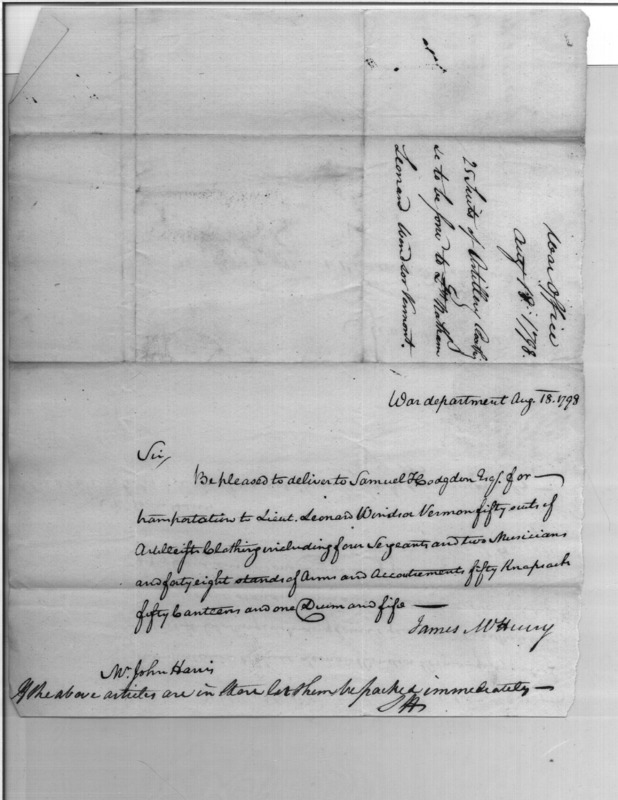 War Office
Aug 18: 1798.
25 Suits of Artillery
&c to be forw'd to Lt Nathan
Leonard Windsor Vermont.
War department Aug. 18. 1798
Sir,
Be pleased to deliver to Samuel Hodgdon Esq. for
transportation to Lieut. Leonard Windsor Vermon fifty suits of
Clothing including four Sergeants and two Musicians
and forty eight stands of Arms and Accoutrements fifty Knapsack
fifty Canteens and one Drum and fife
James McHenry
Mr. John Harris
If the above articles are in Store let them be packed immediately
SH